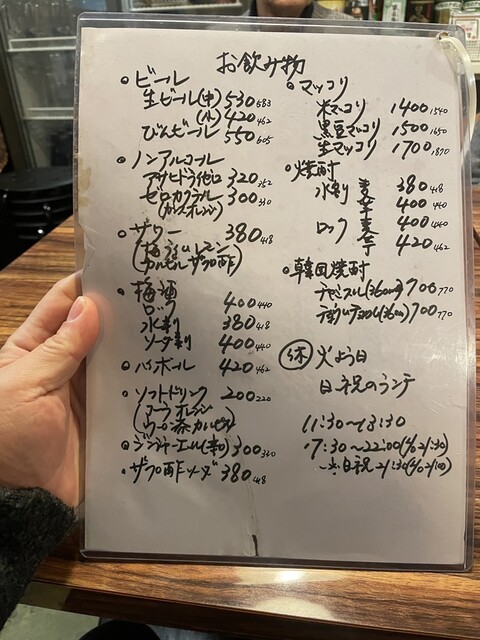 お飲み物
○ビール
生ビール(中) 530 683
(小) 420 462
びんビール 550 605
○ノンアルコール
アサヒドライゼロ 320 352
ゼロカクテル 300 330
(カシスオレンジ)
○サワー 380 418
(梅 レモン
カルピス ザクロ酢)
○梅酒
ロック 400 440
水割 380 418
ソーダ割 400 440
○ハイボール 420 462
○ソフトドリンク 200 220
(コーラ オレンジ
ウーロン茶 カルピス)
○ジンジャーエール(辛口) 300 330
○ザクロ酢ソーダ 380 418
○マッコリ
米マッコリ 1400 1540
黒豆マッコリ 1500 1650
生マッコリ 1700 1870
○焼酎
水割 麦 380 418
芋 400 440
ロック 麦 400 440
芋 420 462
○韓国焼酎
チャミスル(360ml) 700 770
(360ml) 700 770
休 火よう日
日・祝のランチ
11:30〜13:30
17:30〜22:00(L.O 21:30)
※日祝 21:30(L.O 21:00)